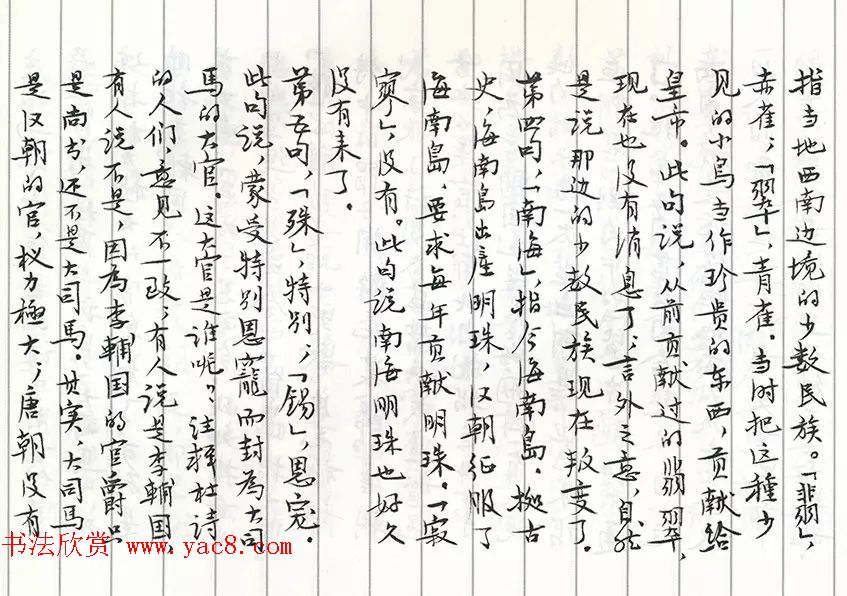 指当地西南边境的少数民族。「翡」，
赤雀；「翠」，青雀。当时把这種少
见的小鸟当作珍贵的东西，贡献给
皇帝。此句说，从前贡献过的翡翠，
现在也没有消息了；言外之意，自然
是说那边的少数民族现在叛变了。
第四句，「南海」，指今海南島，拠古
史，海南島出産明珠，汉朝征服了
海南島，要求每年贡献明珠。「寂
寥」，没有。此句说南海明珠也好久
没有来了。
第五句，「殊」，特别；「锡」，恩宠。
此句说，蒙受特别恩寵而封為大司
馬的大官。这大官是谁呢？注释杜诗
的人们意见不一致，有人说是李輔国，
有人说不是，因為李輔国的官爵只
是尚书，还不是大司馬。其实，大司馬
是汉朝的官，权力極大；唐朝没有
书法欣赏 www.yac8.com